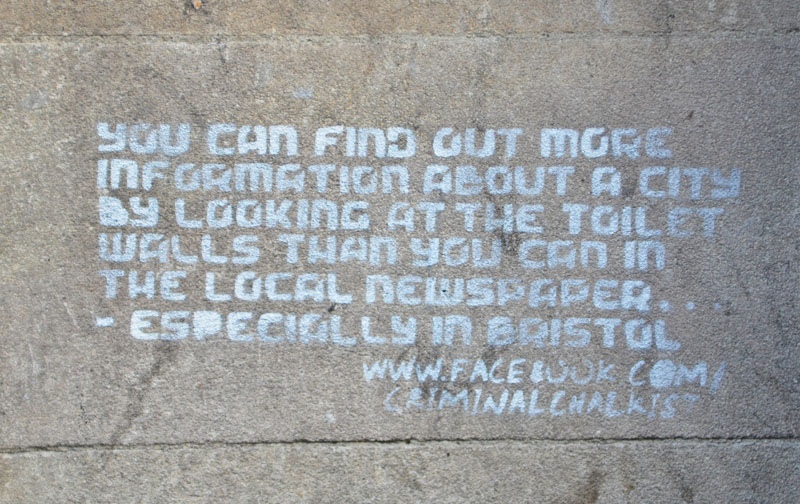 YOU CAN FIND OUT MORE
INFORMATION ABOUT A CITY
BY LOOKING AT THE TOILET
WALLS THAN YOU CAN IN
THE LOCAL NEWSPAPER...
- ESPECIALLY IN BRISTOL
WWW.FACEBOOK.COM/
CRIMINALCHALKIST